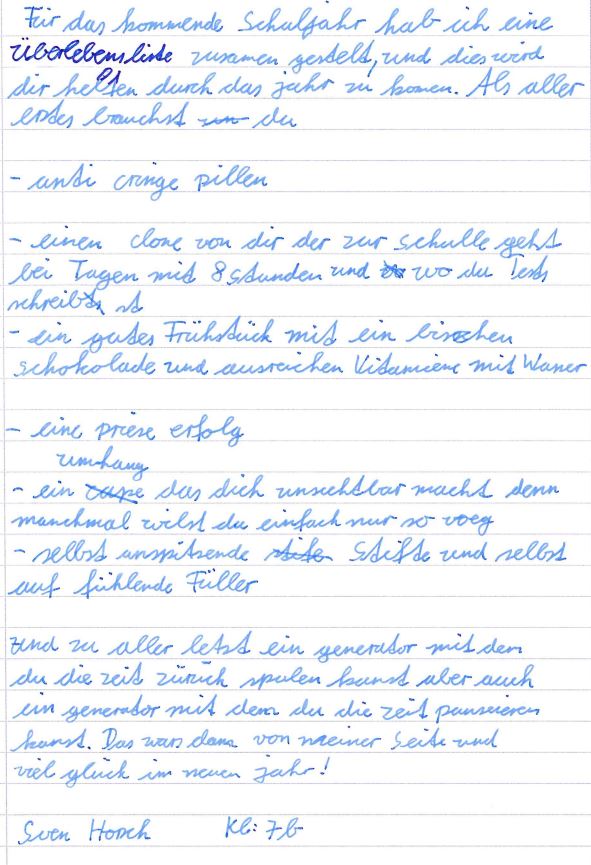 Für das kommende Schuljahr hab ich eine
Überlebensliste zusamen gestelt, und dies wird
dir helfen durch das jahr zu komen. Als aller
erstes brauchst du
- anti cringe pillen
- einen clone von dir der zur schulle geht
bei Tagen mit 8 stunden und wo du Tests
schreibst
- ein gutes Frühstück mit ein bisschen
schokolade und ausreichen Vitamiene mit Wasser
- eine priese erfolg
umhang
- ein cape das dich unsichtbar macht denn
manchmal wilst du einfach nur so weg
- selbst anspitsende Stifte und selbst
auf fühlende Füller
und zu aller letzt ein generator mit dem
du die zeit zürück spulen kanst aber auch
ein generator mit dem du die zeit pausieren
kanst. Das wars dann von meiner Seite und
viel glück im neuen jahr!
Sven Horch Kl: 7b